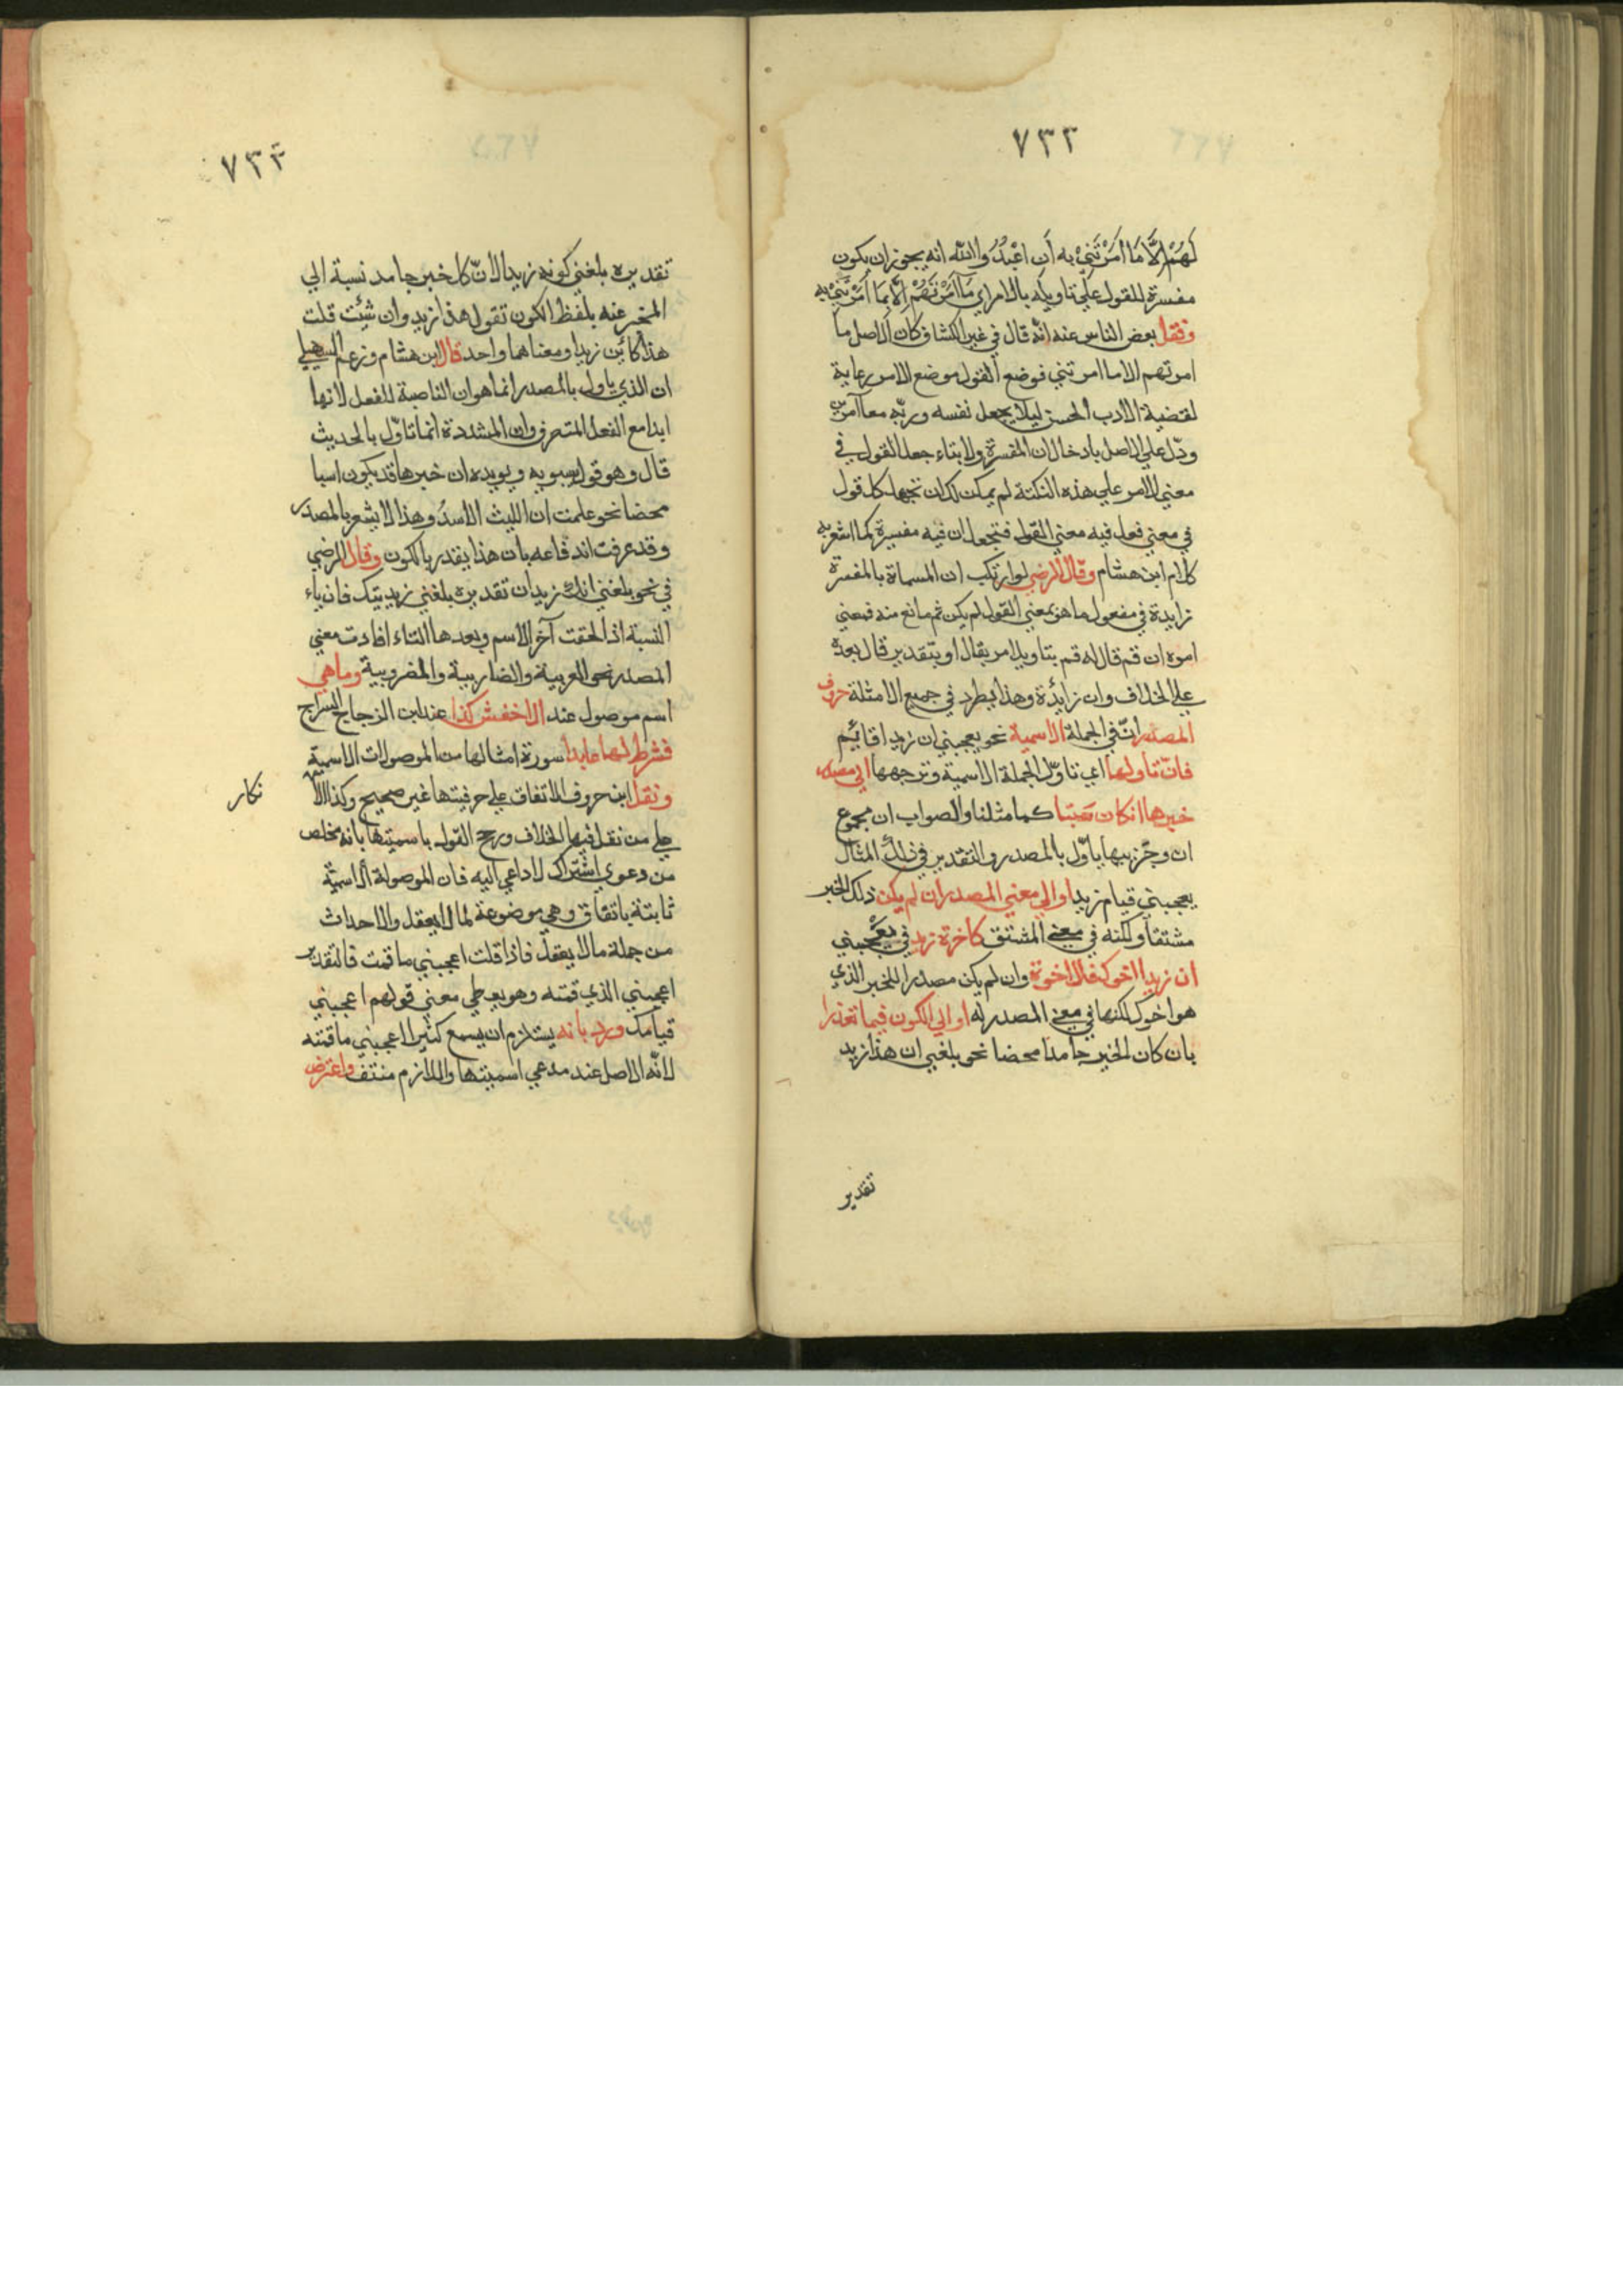 ٧٣٢
لَهُمْ إِلَّا مَا أَمَرْتَنِيْ بِهِ أَنِ اعْبُدُوا اللّه انه يجوز ان يكون
مفسرة للقول علي تاويله بالامر اي مَا أَمَرْتَهُمْ اِلَّا بِمَا أَمَرْتَنِيْ به
ونقل بعض الناس عنه انّه قال في غير الكشاف كان الاصل ما
امرتهم الا ما امرتني فوضع القول موضع الامر رعاية
لقضية الادب الحسن ليلا يجعل نفسه وربّه معا آمرين
ودلّ علي الاصل بادخال ان المفسرة ولا بتاء جعل القول في
معني الامر علي هذه النكتة لم يمكن لك ان تجعل كل قول
في معني فعل فيه معني القول فتجعل ان فيه مفسرة كما اشعر به
كلام ابن هشام وقال الرضي لو ارتكب ان المسماة بالمفسرة
زايدة في مفعول ما هو بمعني القول لم يكن ثم مانع منه فمعني
امره ان قم قال له قم بتاويل امر بقال او بتقدير قال بعده
علي الخلاف وان زائدة وهذا يطرد في جميع الامثلة حروف
المصدر انّ في الجملة الاسمية نحو يعجبني ان زيدا قائم
فانّ تاولها اي تاوّل الجملة الاسمية وترجهها الي مصدر
خبرها ان كان مشتقا كما مثلنا والصواب ان مجموع
ان وجزييها ياوّل بالمصدر والتقدير في ذلك المثال
يعجبني قيام زيد او الي معني المصدر ان لم يكن ذلك الخبر
مشتقا ولكنه في معني المشتق كاخوة زيد في يعجبني
ان زيدا اخوك فالاخوة وان لم يكن مصدرا للخبر الذي
هو اخوك لكنها في معني المصدر له او الي الكون فيما تعذرا
بان كان الخبر جامدا محضا نحو بلغني ان هذا زيد
تقدير
٧٣٣
تقديره بلغني كونه زيدا لانّ كل خبر جامد نسبة الي
المخبر عنه بلفظ الكون تقول هذا زيد وان شئت قلت
هذا كائن زيدا ومعناهما واحد قال ابن هشام وزعم السهيلي
ان الذي ياول بالمصدر انما هو ان الناصبة للفعل لانها
ابدا مع الفعل المتصرف وان المشددة انما تاوّل بالحديث
قال وهو قول سيبويه ويويده ان خبرها قد يكون اسما
محضا نحو علمت ان الليث الاسدُ وهذا لا يشعر بالمصدر
وقد عرفت اندفاعه بان هذا يقدر بالكون وقال الرضي
في نحو بلغني انك زيد ان تقديره بلغني زيديتك فان ياء
النسبة اذا لحقت آخر الاسم وبعدها التاء افادت معني
المصدر نحو العربية والضاربية والمضروبية وما هي
اسم موصول عند الاخفش كذا عند ابن الزجاج السراج
فشرط لها عايدا سورة امثالها من الموصولات الاسمية
ونقل ابن حروف الاتفاق علي حرفيتها غير صحيح وكذا الا
نكار
علي من نقل فيها الخلاف ورجح القول باسميتها بانه تخلص
من دعوي اشتراك لا داعي اليه فان الموصولة الاسميّة
ثابتة باتفاق وهي موضوعة لما لا يعقل والاحداث
من جملة ما لا يعقل فاذا قلت اعجبني ما قمت فالتقدير
اعجبني الذي قمته وهو يعطي معني قولهم اعجبني
قيامك ورد بانه يستلزم ان يسمع كثيرا اعجبني ما قمته
لانّه الاصل عند مدعي اسميتها واللازم منتف واعترض